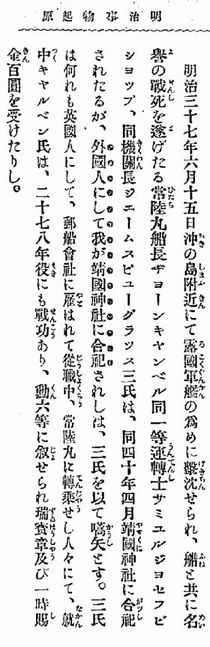 原起物事治明
明治三十七年六月十五日沖の島附近にて露國軍艦の爲めに擊沈せられ、船と共に名
譽の戰死を遂げたる常陸丸船長ヂョーンキャンベル同一等運轉士サミユルジヨセフビ
ショップ、同機關長ジエームスビユーグラッス三氏は、同四十年四月靖國神社に合祀
されたるが、外國人にして我が靖國神社に合祀されしは、三氏を以て嚆矢とす。三氏
は何れも英國人にして、郵船會社に雇はれて從職中、常陸丸に轉乘せし人々にて、就
中キャルベン氏は、二十七八年役にも戰功あり、勳六等に敍せられ瑞寶章及び一時賜
金百圓を受けたりし。